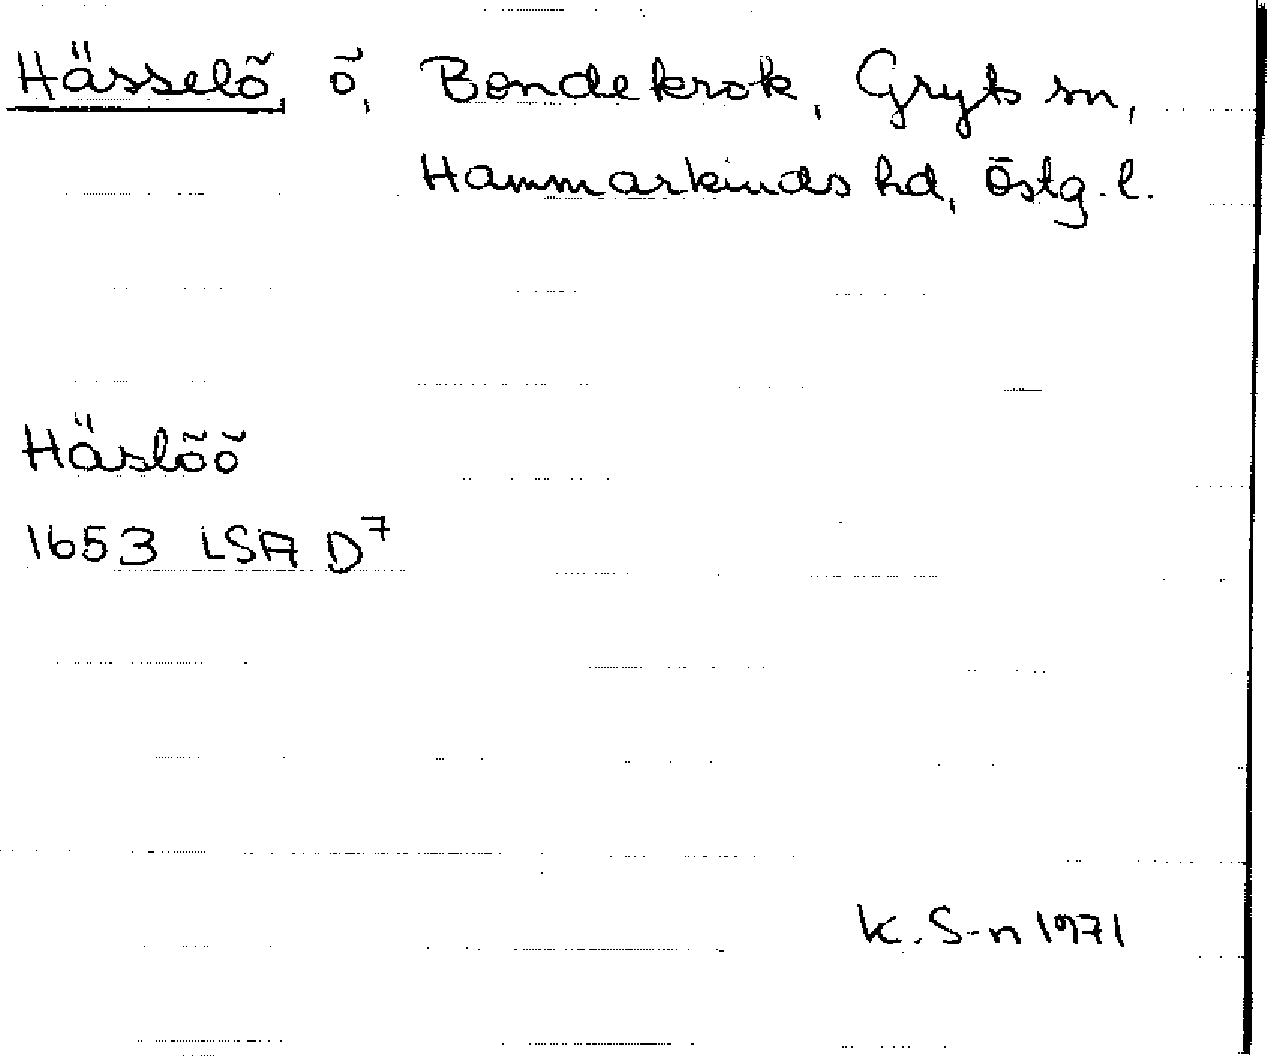 Hässelö ö, Bondekrok, Gryts sn,
Hammarkinds hd, Östg. l.
Häslöö
1653 LSA D7
K. S-n 1971